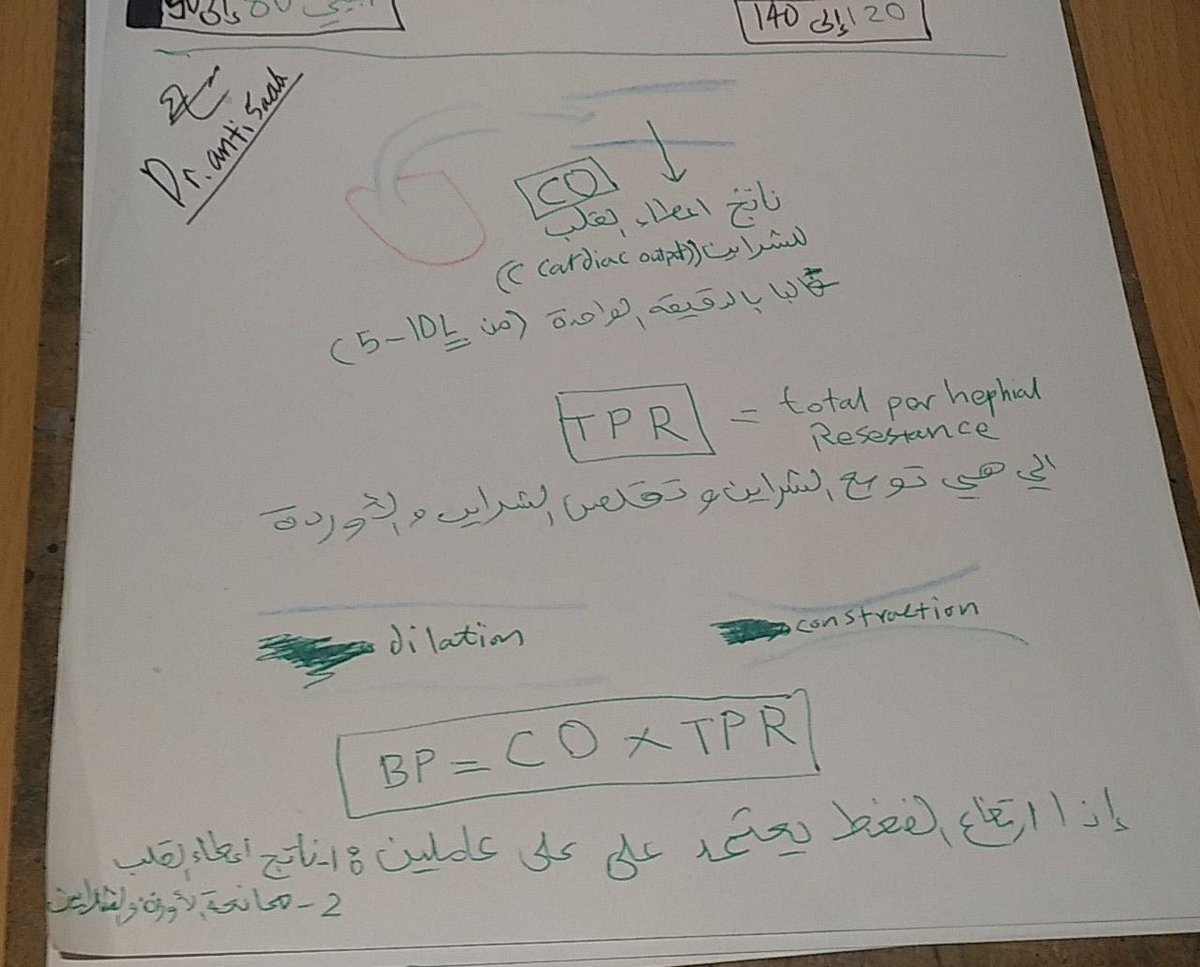 80 إلى 90
120 إلى 140
Dr. anti Saad
CO
ناتج اعطاء القلب
للشراين ((Cardiac output))
غالبا بالدقيقه الواحدة (من 5-10L)
TPR = total por hephial
Resestance
الي هي توسع الشراين و تقلص الشراين و الأوردة
dilation
constraction
BP = CO × TPR
إذا ارتفاع الضغط يعتمد على على عاملين: 1- ناتج اعطاء القلب
2- ممانعة الأوردة والشراين